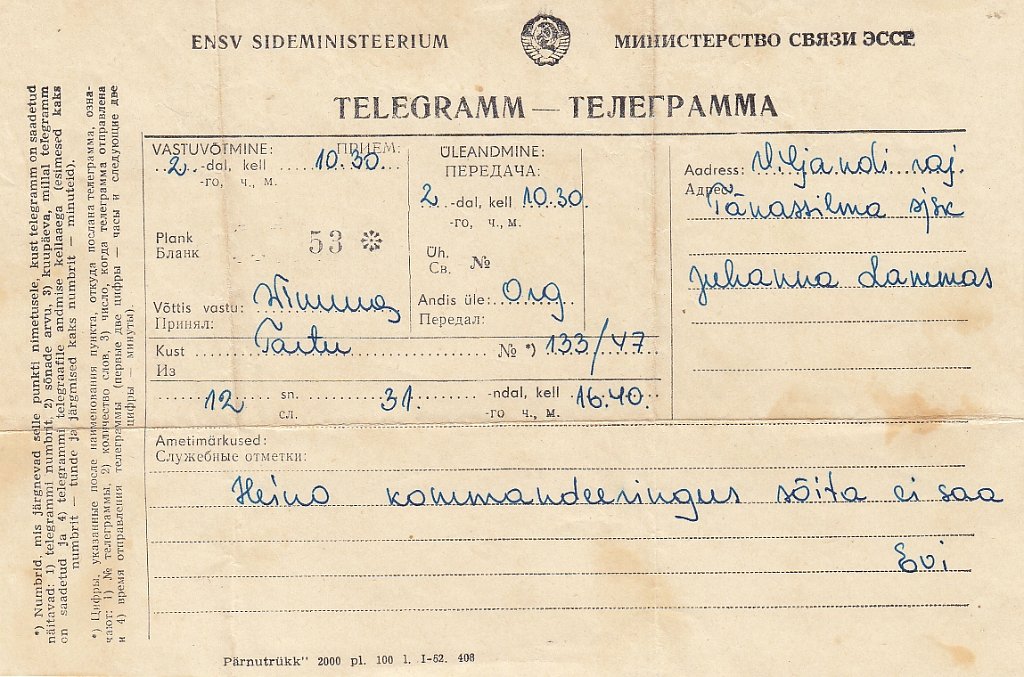 ENSV SIDEMINISTEERIUM
МИНИСТЕРСТВО СВЯЗИ ЭССР
TELEGRAMM — ТЕЛЕГРАММА
VASTUVÕTMINE: ПРИЕМ:
2 -dal, kell 10.30
-го, ч., м.
Plank
Бланк
53 ✻
Võttis vastu:
Принял:
ÜLEANDMINE:
ПЕРЕДАЧА:
2 -dal, kell 10.30.
-го, ч., м.
Üh.
Св. №
Andis üle: Org
Передал:
Aadress: Viljandi raj.
Адрес:
Tänassilma sjsk
Juhanna Lammas
Kust Tartu № *) 133/47
Из
12 sn. 31. -ndal, kell 16.40.
сл. -го ч., м.
Ametimärkused:
Служебные отметки:
Heino kommandeeringus sõita ei saa
Evi
*) Numbrid, mis järgnevad selle punkti nimetusele, kust telegramm on saadetud
näitavad: 1) telegrammi numbrit, 2) sõnade arvu, 3) kuupäeva, millal telegramm
on saadetud ja 4) telegrammi telegraafile andmise kellaaega (esimesed kaks
numbrit — tunde ja järgmised kaks numbrit — minuteid).
*) Цифры, указанные после наименования пункта, откуда послана телеграмма, озна-
чают: 1) № телеграммы, 2) количество слов, 3) число, когда телеграмма отправлена
и 4) время отправления телеграммы (первые две цифры — часы и следующие две
цифры — минуты).
Pärnutrükk" 2000 pl. 100 l. I-62. 408